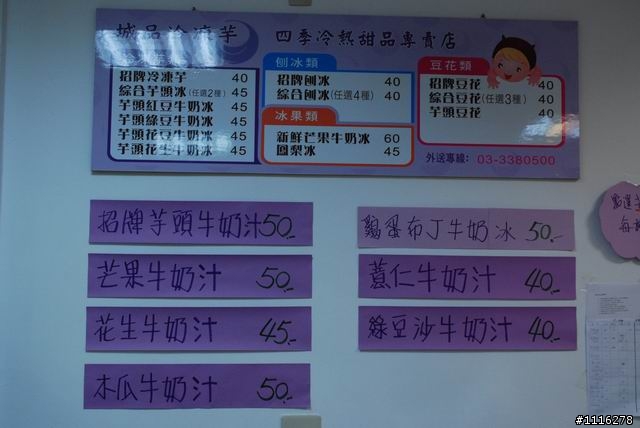 城品冷凍芋 四季冷熱甜品專賣店
招牌冷凍芋 40
綜合芋頭冰(任選2種) 45
芋頭紅豆牛奶冰 45
芋頭綠豆牛奶冰 45
芋頭花豆牛奶冰 45
芋頭花生牛奶冰 45
刨冰類
招牌刨冰 40
綜合刨冰(任選4種) 40
冰果類
新鮮芒果牛奶冰 60
鳳梨冰 45
豆花類
招牌豆花 40
綜合豆花(任選3種) 40
芋頭豆花 40
外送專線: 03-3380500
招牌芋頭牛奶汁50.-
芒果牛奶汁 50.-
花生牛奶汁 45.-
木瓜牛奶汁 50.-
鷄蛋布丁牛奶冰 50.-
薏仁牛奶汁 40.-
綠豆沙牛奶汁 40.-
#1116278